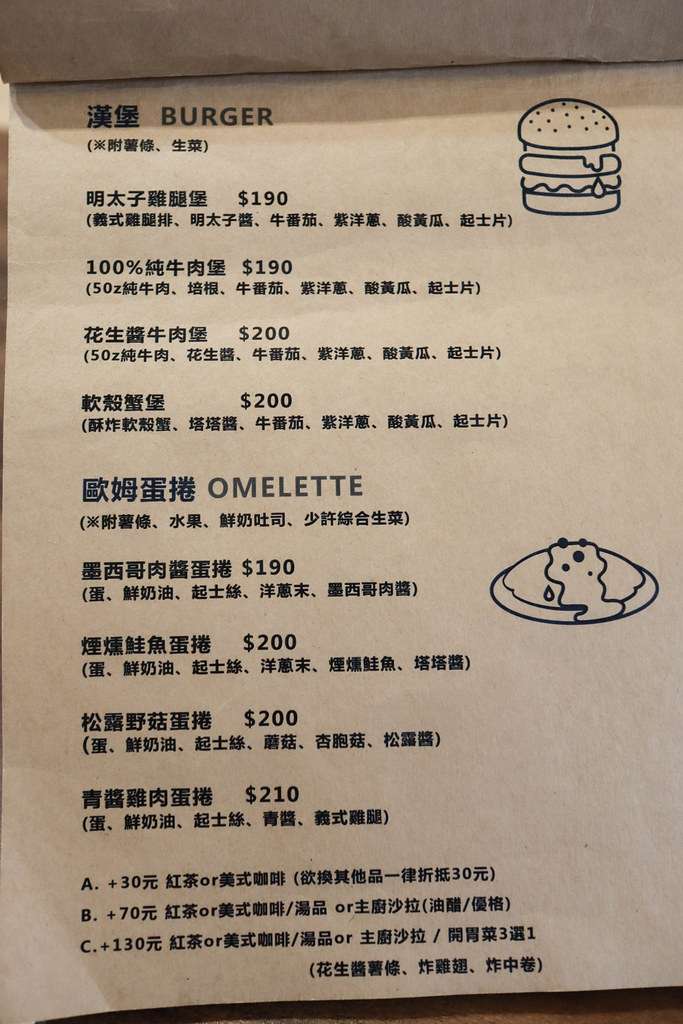 漢堡 BURGER
(※附薯條、生菜)
明太子雞腿堡 $190
(義式雞腿排、明太子醬、牛番茄、紫洋蔥、酸黃瓜、起士片)
100%純牛肉堡 $190
(5oz純牛肉、培根、牛番茄、紫洋蔥、酸黃瓜、起士片)
花生醬牛肉堡 $200
(5oz純牛肉、花生醬、牛番茄、紫洋蔥、酸黃瓜、起士片)
軟殼蟹堡 $200
(酥炸軟殼蟹、塔塔醬、牛番茄、紫洋蔥、酸黃瓜、起士片)
歐姆蛋捲 OMELETTE
(※附薯條、水果、鮮奶吐司、少許綜合生菜)
墨西哥肉醬蛋捲 $190
(蛋、鮮奶油、起士絲、洋蔥末、墨西哥肉醬)
煙燻鮭魚蛋捲 $200
(蛋、鮮奶油、起士絲、洋蔥末、煙燻鮭魚、塔塔醬)
松露野菇蛋捲 $200
(蛋、鮮奶油、起士絲、蘑菇、杏胞菇、松露醬)
青醬雞肉蛋捲 $210
(蛋、鮮奶油、起士絲、青醬、義式雞腿)
A. +30元 紅茶or美式咖啡 (欲換其他品一律折抵30元)
B. +70元 紅茶or美式咖啡/湯品 or主廚沙拉(油醋/優格)
C.+130元 紅茶or美式咖啡/湯品or 主廚沙拉 / 開胃菜3選1
(花生醬薯條、炸雞翅、炸中卷)